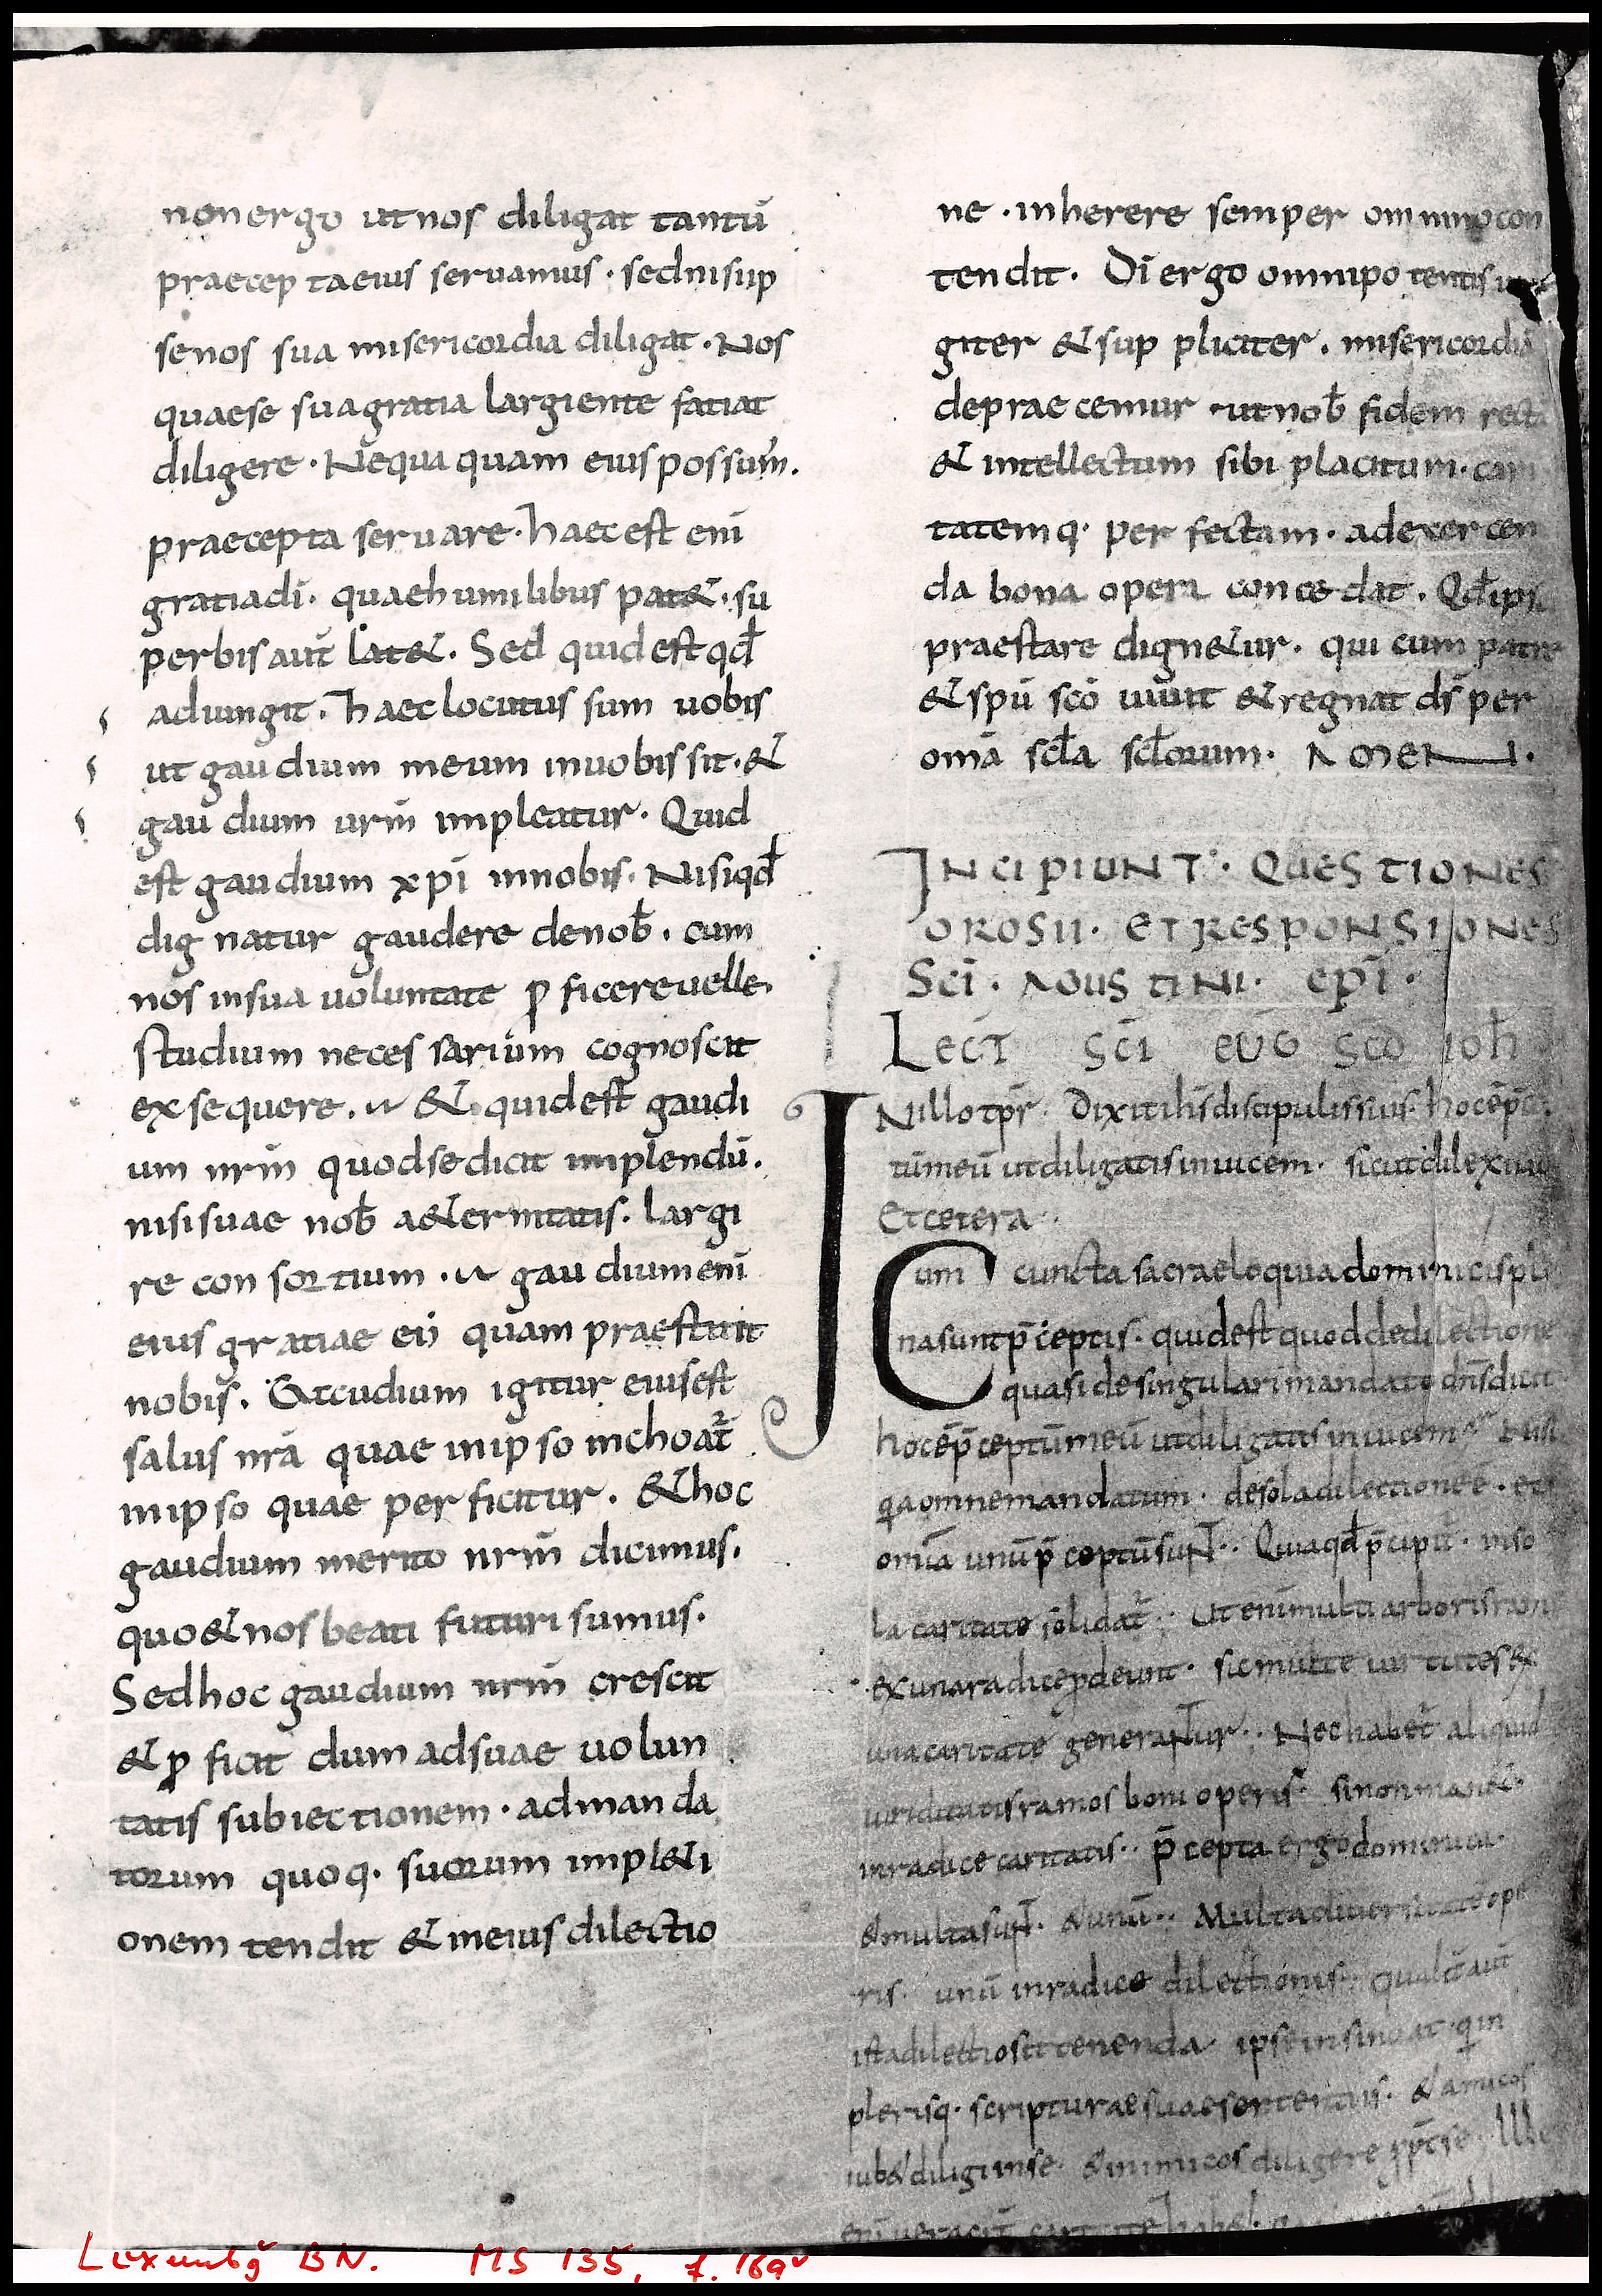 non ergo ut nos diligat tantū
praecepta eius seruamus · sed nisi ip
se nos sua misericordia diligat · Nos
quae se sua gratia largiente fatiat
diligere · Nequaquam eius possum̄.
praecepta seruare · haec est eni
gratia dī · quae humilibus pat& · su
perbis aut̄ lat& · Sed quid est qđ
adiungit · haec locutus sum uobis
ut gaudium meum in uobis sit · &
gaudium urm̄ impleatur · Quid
est gaudium xpī in nobis · Nisi qđ
dignatur gaudere de nob̄ · cum
nos in sua uoluntate ꝓficere uelle ·
studium necessarium cognoscit
exsequere · & quid est gaudi
um nrm̄ quod se dicit implendū ·
nisi suae nob̄ a&ernitatis · largi
re consortium · gaudium eni
eius gratiae eii quam praestitit
nobis · Gaudium igitur eius est
salus nrā quae in ipso inchoat̄
in ipso quae perficitur · & hoc
gaudium merito nrm̄ dicimus ·
quo & nos beati futuri sumus ·
Sed hoc gaudium nrm̄ crescit
& ꝓficit dum ad suae uolun
tatis subiectionem · ad manda
torum quoq · suorum impl&i
onem tendit & in eius dilectio
ne · inherere semper omnino con
tendit · Dī ergo omnipotentis
giter & suppliciter · misericordiā
depraecemur · ut nob̄ fidem rectā
& intellectum sibi placitum · cari
tatemq · perfectam · ad exercen
da bona opera concedat · Qđ ipi
praestare dign&ur · qui cum patre
& spū scō uiuit & regnat ds̄ per
omā scl̄a scl̄orum · AMEN ·
INCIPIUNT · QUESTIONES
OROSII · ET RESPONSIONES
SCĪ · AGUSTINI · EPĪ ·
LECT̄ SCĪ EUḠ SCD̄ IOH̄
IN illo tp̄r · Dixit ih̄s discipulis suis · hoc ē p̄cep
tū meū ut diligatis inuicem · sicut dilexi uos
Et cetera ·
Cum cuncta sacra eloquia dominicis ple
na sunt p̄ceptis · quid est quod de dilectione
quasi de singulari mandato dn̄s dicit
hoc ē p̄ceptum meū ut diligatis inuicem · Nisi
q̄a omne mandatum · de sola dilectione ē · et
omīa unū p̄ceptū sunt · Quia qđ p̄cipit̄ · in so
la caritate solidat̄ · Ut enī multi arboris rami
ex una radice ꝓdeunt · sic multe uirtutes ex
una caritate generantur · Nec habet̄ aliquid
uiriditatis ramos boni operis · si non man& ·
in radice caritatis · p̄cepta ergo dominica ·
& multa sunt · & unū · Multa diuersitate ope
ris · unū in radice dilectionis · Qualit̄ aut̄
ista dilectio sit tenenda ipse insinuat · q̄ in
plerisq · scripturae suae sententiis · & amicos
iub& diligi in se · & inimicos diligere ꝓpt̄ se · Ille
Luxembg BN. MS 135, f. 169v